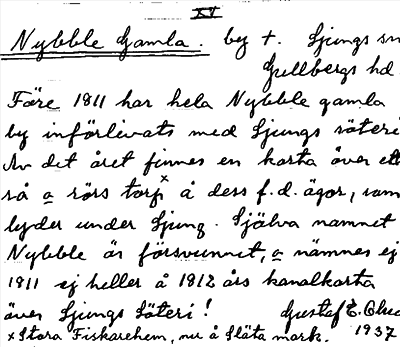 XV
Nybble Gamla. by +. Ljungs sn
Gullbergs hd.
Före 1811 har hela Nybble gamla
by införlivats med Ljungs säteri
Av det året finnes en karta över ett
så a rörs torp x å dess f.d. ägor, som
lyder under Ljung. Själva namnet
Nybble är försvunnet, a nämnes ej
1811 ej heller å 1812 års kanalkarta
över Ljungs Säteri! Gustaf E.
x Stora Fiskarehem, nu å Släta mark. 1937